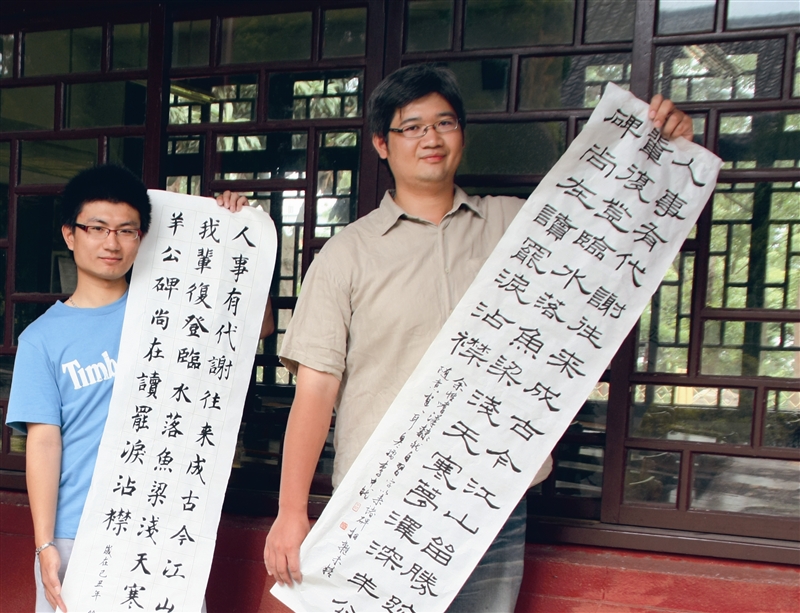 Timb
人事有代謝往来成古今江山
我輩復登臨水落魚梁淺天寒
羊公碑尚在讀罷淚沾襟
歲在己丑年
人事有代謝往来成古今江山留勝跡
輩復登臨水落魚梁淺天寒夢澤深羊公
碑尚在讀罷淚沾襟